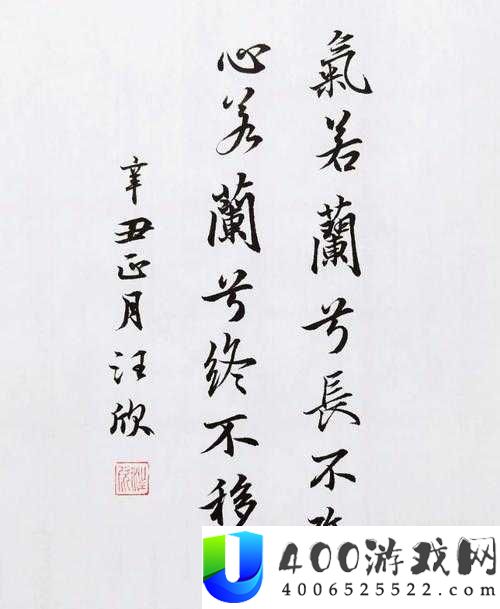 氣若蘭兮長不
心若蘭兮終不移
辛丑正月汪欣
400游戏网
4006525522.com